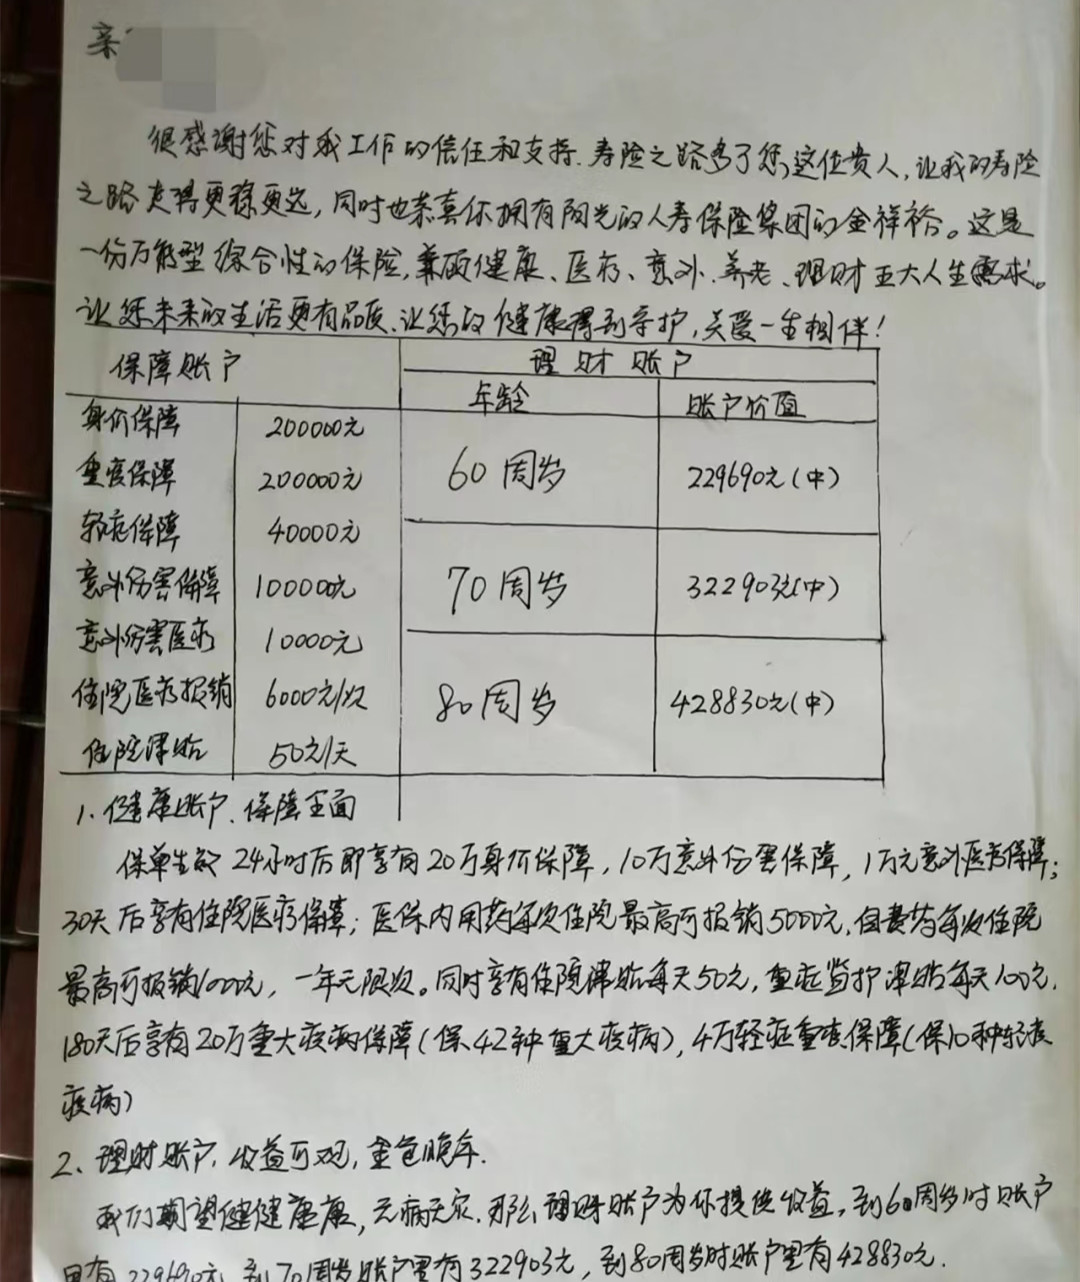 亲
很感谢您对我工作的信任和支持.寿险之路多了您这位贵人,让我的寿险
之路走得更稳更远,同时也恭喜你拥有阳光的人寿保险集团的金祥裕。这是
一份万能型综合性的保险,兼顾健康、医疗、意外、养老、理财五大人生需求。
让您未来的生活更有品质、让您的健康得到守护,关爱一生相伴!
保障账户 理财账户
年龄 账户价值
身价保障 200000元
重疾保障 200000元 60周岁 229690元(中)
轻症保障 40000元
意外伤害保障 100000元 70周岁 322903元(中)
意外伤害医疗 10000元
住院医疗报销 6000元/次 80周岁 428830元(中)
住院津贴 50元/天
1.健康账户、保障全面
保单生效24小时后即享有20万身价保障,10万意外伤害保障,1万元意外医疗保障;
30天后享有住院医疗保障;医保内用药每次住院最高可报销5000元,自费药每次住院
最高可报销1000元,一年无限次。同时享有住院津贴每天50元,重症监护津贴每天100元,
180天后享有20万重大疾病保障(保42种重大疾病),4万轻症重疾保障(保10种轻症
疾病)
2、理财账户,收益可观,金色晚年.
我们期望健健康康,无病无灾.那么理财账户为你提供收益,到60周岁时账户
里有229690元,到70周岁账户里有322903元,到80周岁时账户里有428830元.